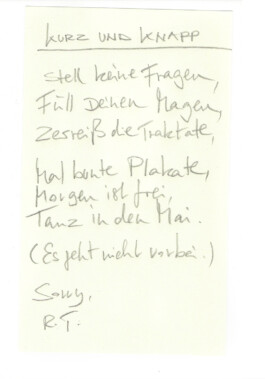 KURZ UND KNAPP
Stell keine Fragen,
Füll Deinen Magen,
Zerreiß die Traktate,
Mal bunte Plakate,
Morgen ist frei,
Tanz in den Mai.
(Es geht nicht vorbei.)
Sorry,
R.T.